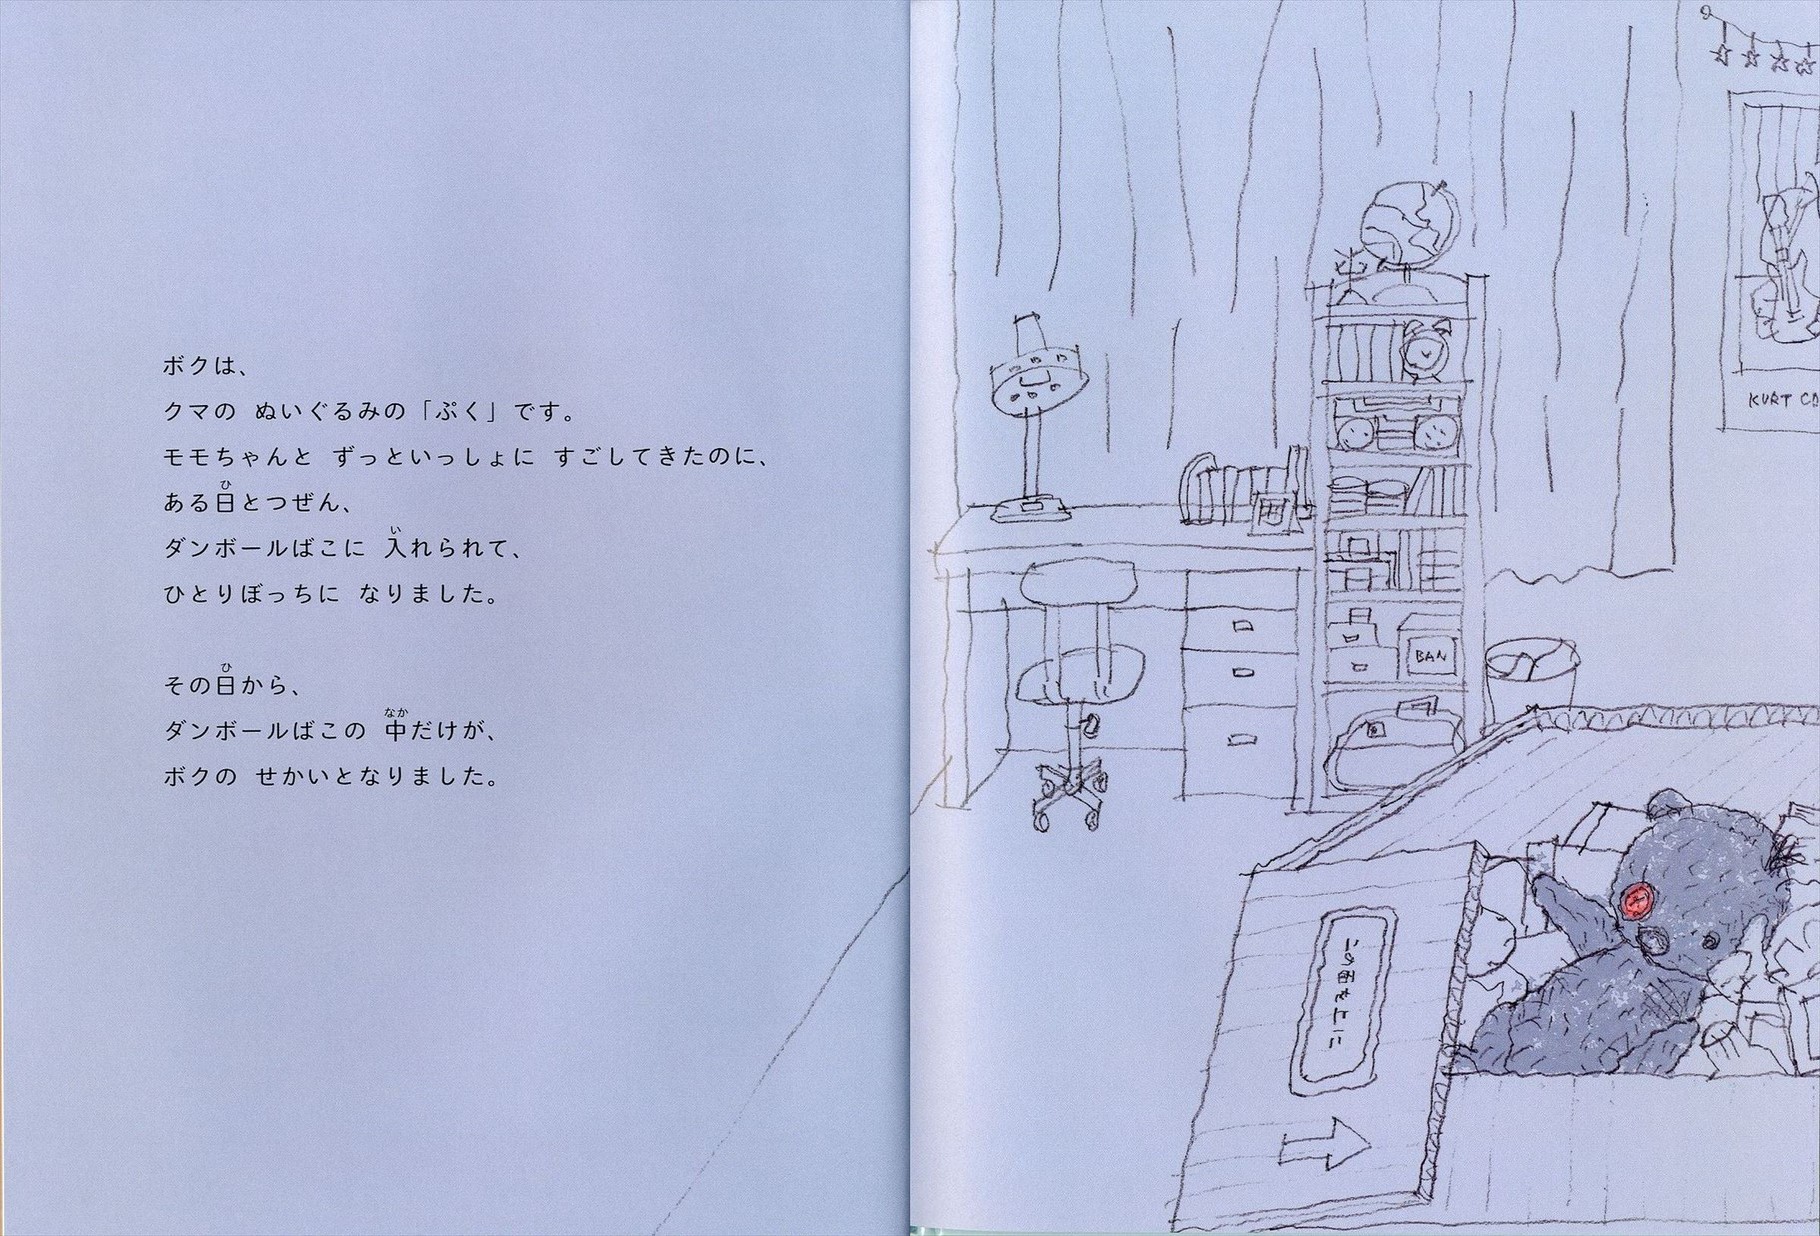 ボクは、
クマの ぬいぐるみの「ぷく」です。
モモちゃんと ずっといっしょに すごしてきたのに、
ある日とつぜん、
ダンボールばこに 入れられて、
ひとりぼっちに なりました。
その日から、
ダンボールばこの 中だけが、
ボクの せかいとなりました。
KURT CO
BAN
この面を上に